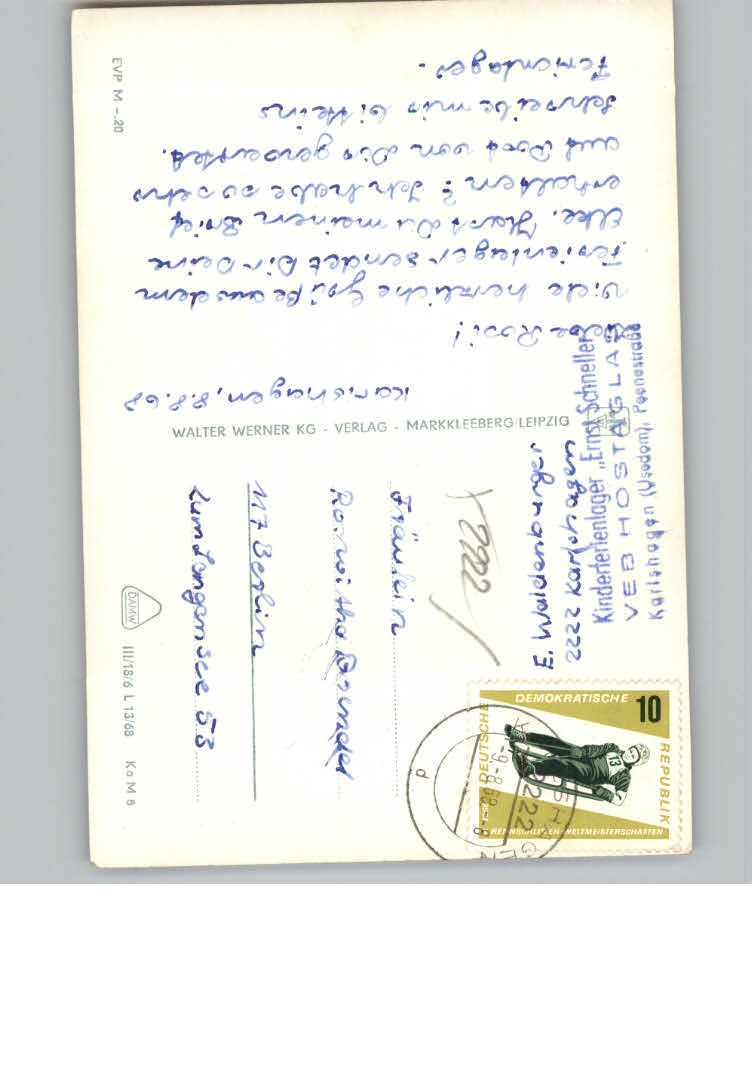 Karlshagen, 8.8.68
Liebe Rosi!
Viele herzliche Grüße aus dem
Ferienlager sendet Dir Deine
Elke. Hast Du meinen Brief
erhalten? Ich habe so sehr
auf Post von Dir gewartet.
Schreibe mir bitte ins
Ferienlager.
EVP M -.20
WALTER WERNER KG - VERLAG - MARKKLEEBERG/LEIPZIG
E. Waldenburger
2222 Karlshagen
Kinderferienlager „Ernst Schneller"
VEB HOSTAGLAS
Karlshagen (Usedom), Peenestraße
2922
Fräulein
117 Berlin
Zum Langen See 53
DAMW
III/18/6 L 13/68 Ka M 6
DEUTSCHE
DEMOKRATISCHE
REPUBLIK
10
13
RENNSCHLITTEN-WELTMEISTERSCHAFTEN
2222
-9.-8.68
d